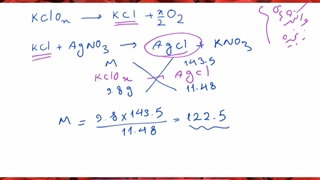 KClOx → KCl + x/2 O2
KCl + AgNO3 → AgCl + KNO3
M 143.5
KClOx → AgCl
9.8g 11.48
M = 9.8 x 143.5 / 11.48 = 122.5